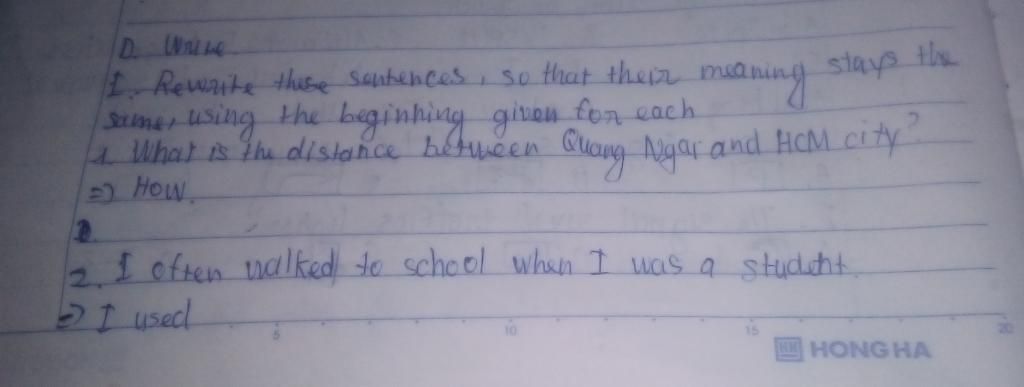 D. Write
I. Rewrite these sentences, so that their meaning stays the
same, using the beginning given for each
1. What is the distance between Quang Ngai and HCM city?
=> How
2. I often walked to school when I was a student.
=> I used
5 10 15 20
HH HONG HA